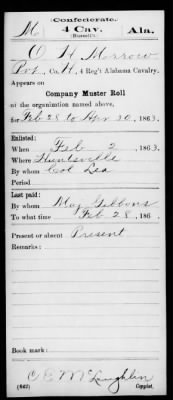 Confederate.
M 4 Cav. Ala.
(Russell's).
O H Morrow
Pvt, Co. H, 4 Reg't Alabama Cavalry.
Appears on
Company Muster Roll
of the organization named above,
for Feb 28 to Apr 30, 1863.
Enlisted:
When Feb 2, 1863.
Where Huntsville
By whom Col Lea
Period
Last paid:
By whom Maj Gibbons
To what time Feb 28, 186 .
Present or absent Present
Remarks:
Book mark:
C E McLaughlin
(642) Copyist.